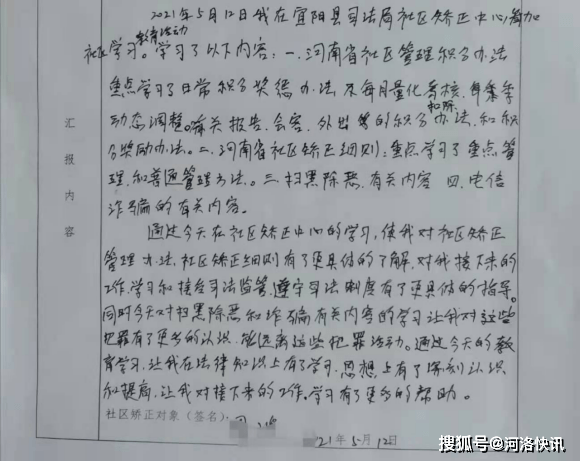 2021年5月12日我在宜阳县司法局社区矫正中心参加
教育活动
社区学习。学习了以下内容：一.河南省社区管理积分办法
重点学习了日常积分奖惩办法 每月量化考核.
动态调整.有关报告.会客.外出等的积分扣除办法.和积
分奖励办法。二.河南省社区矫正细则：重点学习了重点管
理.和普通管理方法。三.扫黑除恶.有关内容 四.电信
诈骗的有关内容。
通过今天在社区矫正中心的学习，使我对社区矫正
管理办法.社区矫正细则有了更具体的了解.对我接下来的
工作.学习和接受司法监管.遵守司法制度有了更具体的指导。
同时今天对扫黑除恶和诈骗有关内容的学习让我对这些
犯罪有了更多的认识.能远离这些犯罪活动。通过今天的教
育学习.让我在法律知识上有了学习.思想上有了深刻认识
和提高.让我对接下来的工作.学习有了更多的帮助。
汇报内容
社区矫正对象（签名）：
21年5月12日
搜狐号@河洛快讯